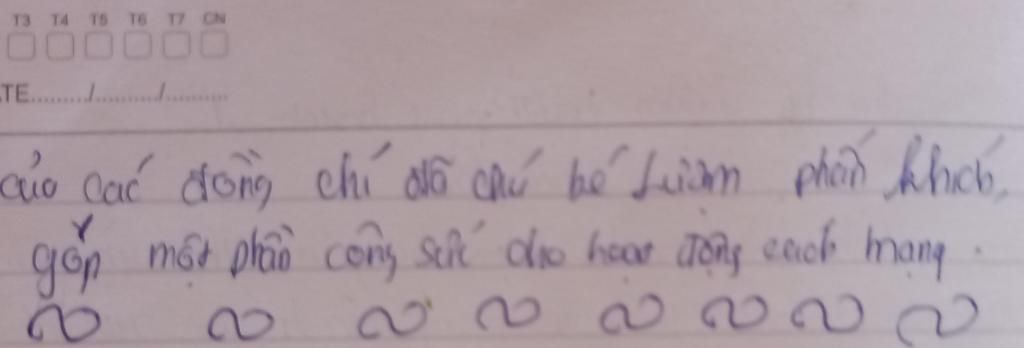 T3 T4 T5 T6 T7 CN
TE......../........../..........
của các đồng chí đã chú bé Lượm phấn khích,
góp một phần công sức cho hoạt động cách mạng.